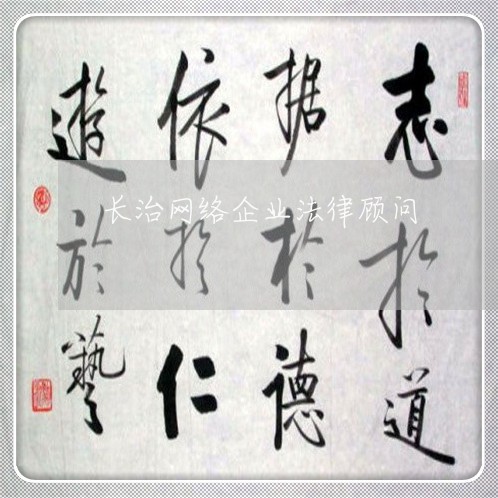 志扵道
据於德
依扵仁
遊於藝
长治网络企业法律顾问